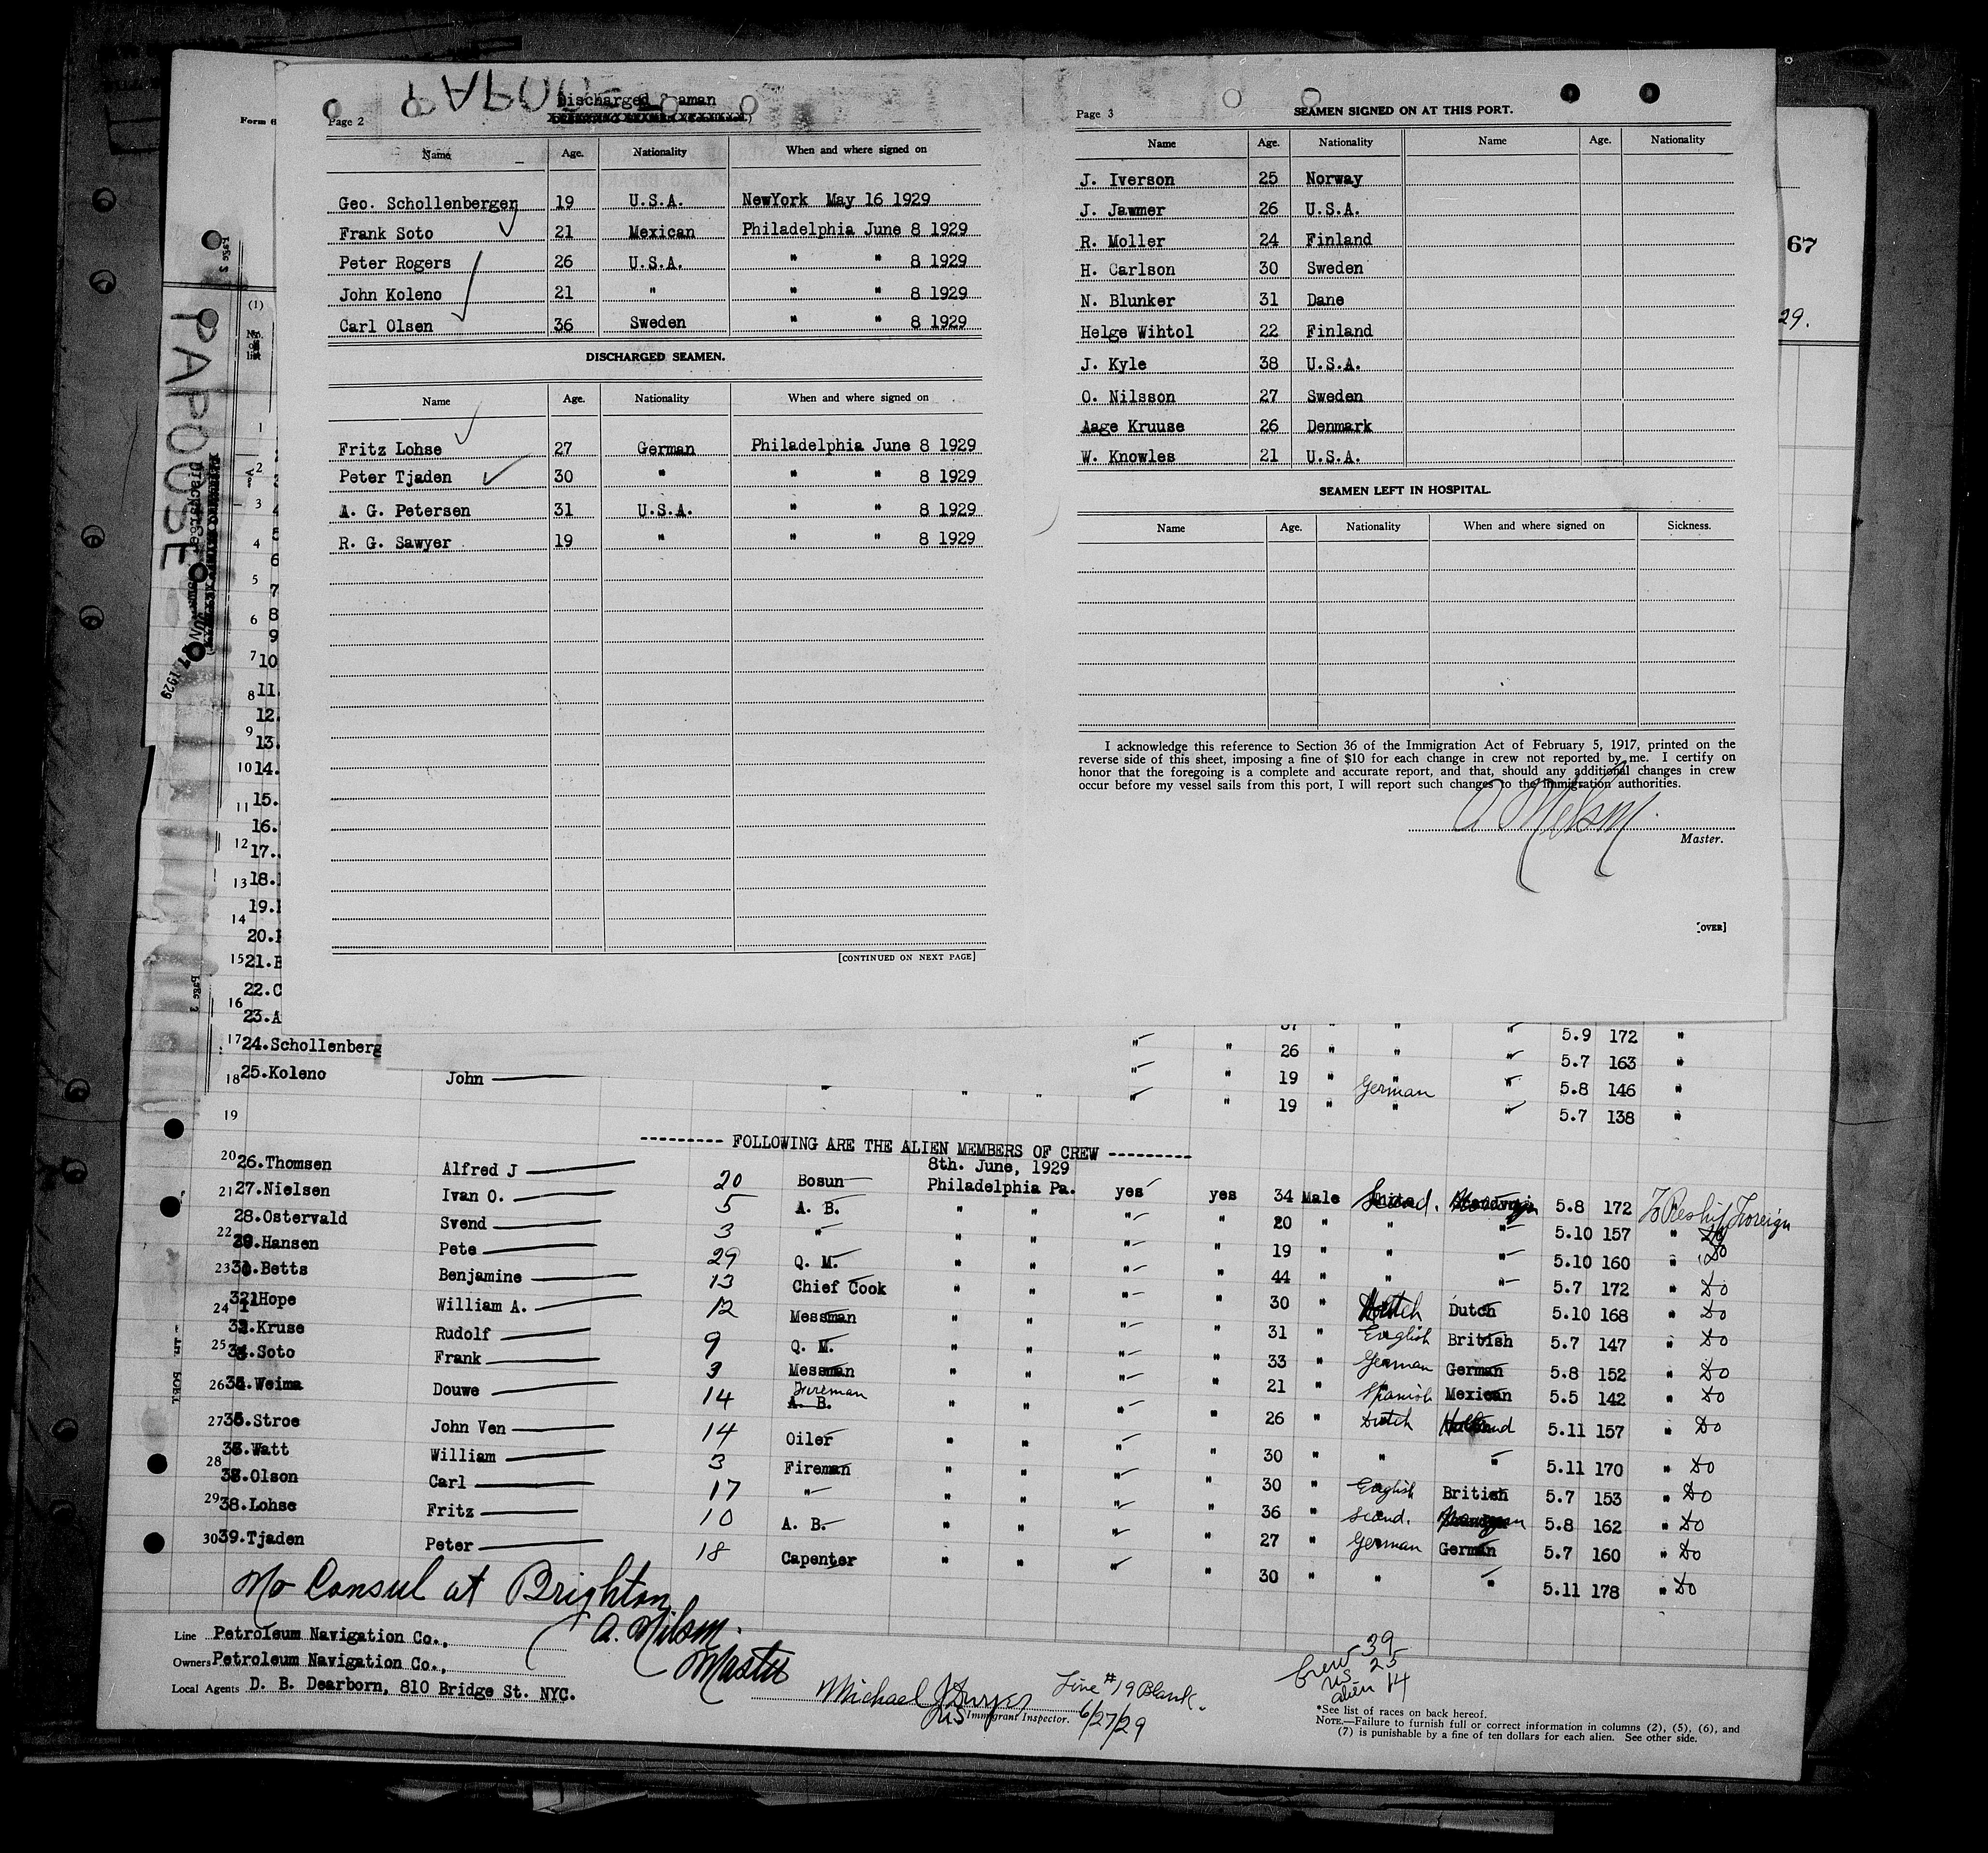 PAPOOSE
Page 2
Discharged Seaman
Name Age. Nationality When and where signed on
Geo. Schollenbergen 19 U.S.A. NewYork May 16 1929
Frank Soto 21 Mexican Philadelphia June 8 1929
Peter Rogers 26 U.S.A. " " 8 1929
John Koleno 21 " " " 8 1929
Carl Olsen 36 Sweden " " 8 1929
DISCHARGED SEAMEN.
Name Age. Nationality When and where signed on
Fritz Lohse 27 German Philadelphia June 8 1929
Peter Tjaden 30 " " " 8 1929
A. G. Petersen 31 U.S.A. " " 8 1929
R. G. Sawyer 19 " " " 8 1929
[CONTINUED ON NEXT PAGE]
Page 3
SEAMEN SIGNED ON AT THIS PORT.
Name Age. Nationality Name Age. Nationality
J. Iverson 25 Norway
J. Jawmer 26 U.S.A.
R. Moller 24 Finland
H. Carlson 30 Sweden
N. Blunker 31 Dane
Helge Wihtol 22 Finland
J. Kyle 38 U.S.A.
O. Nilsson 27 Sweden
Aage Kruuse 26 Denmark
W. Knowles 21 U.S.A.
SEAMEN LEFT IN HOSPITAL.
Name Age. Nationality When and where signed on Sickness.
I acknowledge this reference to Section 36 of the Immigration Act of February 5, 1917, printed on the
reverse side of this sheet, imposing a fine of $10 for each change in crew not reported by me. I certify on
honor that the foregoing is a complete and accurate report, and that, should any additional changes in crew
occur before my vessel sails from this port, I will report such changes to the immigration authorities.
Master.
[OVER]
67
29.
Form 6
(1)
No. on list
PAPOOSE
1
2
3
4 5
6
5 7
6 8
9
7 10
8 11.
12.
9 13.
10 14.
11 15.
16.
12 17.
13 18.
14 19.
20.
15 21.
16 22.C
23.A
5.9 172 "
17 24.Schollenberg " " 26 " " " 5.7 163 "
18 25.Koleno John " " " " " 19 " German " 5.8 146 "
19 " " 19 " " " 5.7 138 "
--------- FOLLOWING ARE THE ALIEN MEMBERS OF CREW ---------
8th. June, 1929
20 26.Thomsen Alfred J 20 Bosun Philadelphia Pa. yes yes 34 Male Scand. 5.8 172 To Reship Foreign
21 27.Nielsen Ivan O. 5 A. B. " " " " 20 " " " 5.10 157 " Do
28.Ostervald Svend 3 " " " " " 19 " " " 5.10 160 " Do
22 Hansen Pete 29 Q. M. " " " " 44 " " " 5.7 172 " Do
23 Betts Benjamine 13 Chief Cook " " " " 30 " Dutch Dutch 5.10 168 " Do
24 Hope William A. 12 Messman " " " " 31 " English British 5.7 147 " Do
Kruse Rudolf 9 Q. M. " " " " 33 " German German 5.8 152 " Do
25 Soto Frank 3 Messman " " " " 21 " Spanish Mexican 5.5 142 " Do
26 Weima Douwe 14 Fireman A. B. " " " " 26 " Dutch Holland 5.11 157 " Do
27 Stroe John Ven 14 Oiler " " " " 30 " " " 5.11 170 " Do
Watt William 3 Fireman " " " " 30 " English British 5.7 153 " Do
28 Olson Carl 17 " " " " " 36 " Scand. 5.8 162 " Do
29 38.Lohse Fritz 10 A. B. " " " " 27 " German German 5.7 160 " Do
30 39.Tjaden Peter 18 Capenter " " " " 30 " " " 5.11 178 " Do
No Consul at Brighton
Master
Line Petroleum Navigation Co.,
Owners Petroleum Navigation Co.,
Local Agents D. B. Dearborn, 810 Bridge St. NYC.
Michael J Dwyer
Immigrant Inspector.
Line # 19 Blank.
6/27/29
Crew 39
US 25
alien 14
*See list of races on back hereof.
NOTE.—Failure to furnish full or correct information in columns (2), (5), (6), and
(7) is punishable by a fine of ten dollars for each alien. See other side.